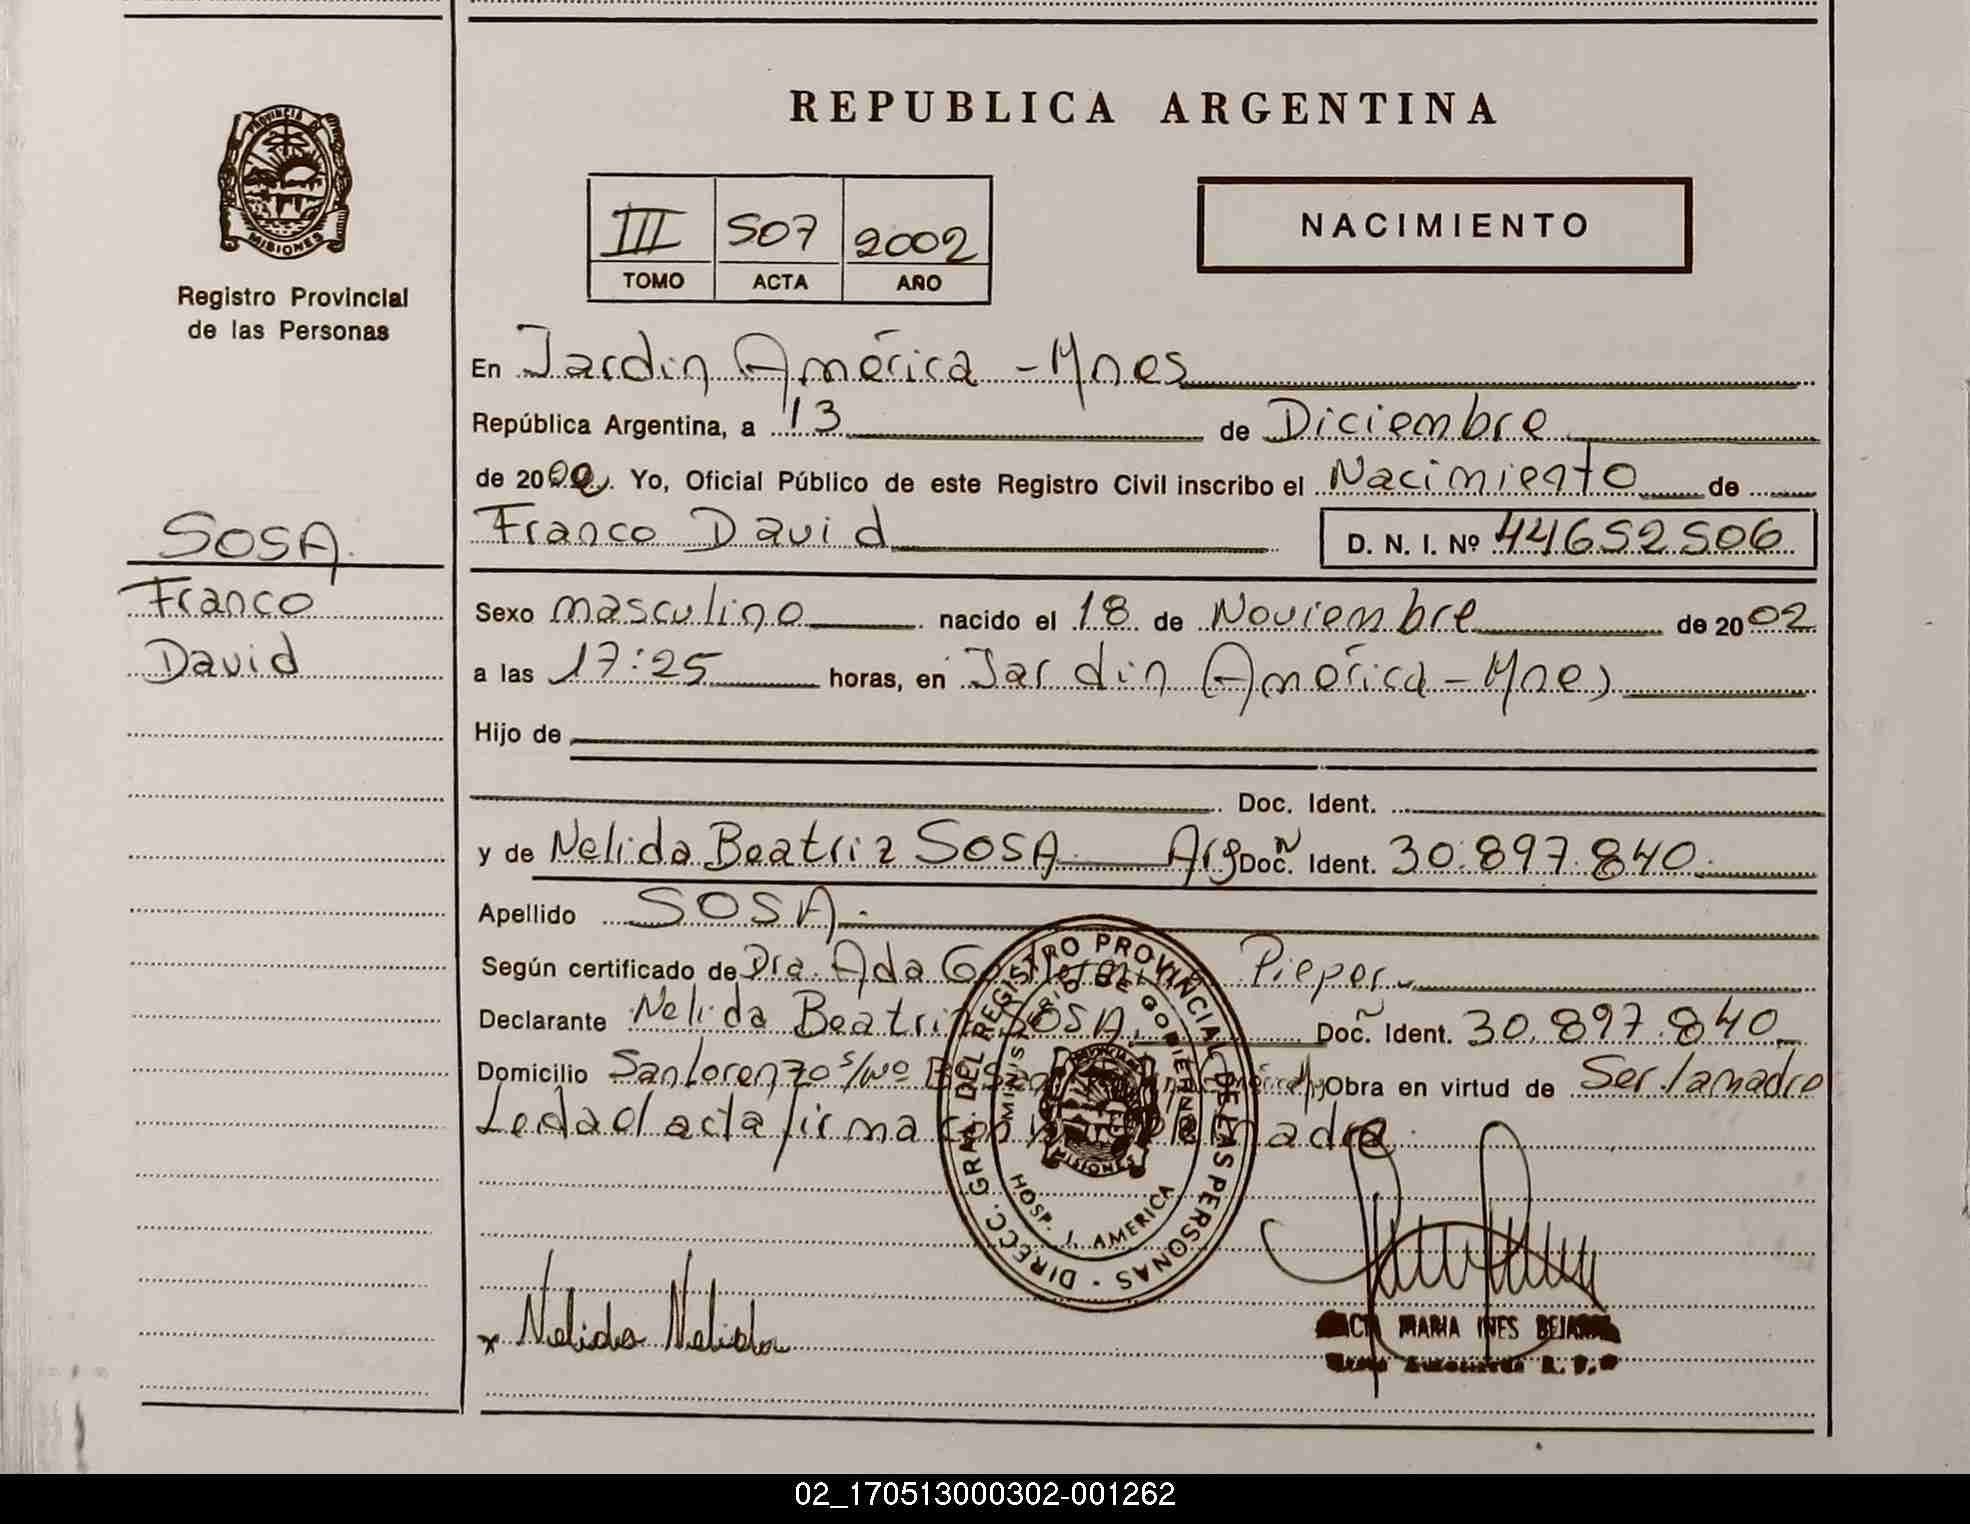 PROVINCIA DE
MISIONES
Registro Provincial
de las Personas
SOSA.
Franco
David
REPUBLICA ARGENTINA
III 507 2002
TOMO ACTA AÑO
NACIMIENTO
En Jardin América - Mnes
República Argentina, a 13 de Diciembre
de 2002. Yo, Oficial Público de este Registro Civil inscribo el Nacimiento de
Franco David D. N. I. Nº 44652506
Sexo masculino nacido el 18 de Noviembre de 2002
a las 17:25 horas, en Jardin América - Mnes
Hijo de
Doc. Ident.
y de Nelida Beatriz SOSA Argñ Doc. Ident. 30.897.840.
Apellido SOSA.
Según certificado de Dra. Ada Pieper
Declarante Nelida Beatriz SOSA. Doc. Ident. 30.897.840
Domicilio San Lorenzo s/nº Obra en virtud de Ser la madre
Leida el acta firma con madre.
DIRECC. GRAL. DEL REGISTRO PROVINCIAL DE LAS PERSONAS
MINISTERIO DE GOBIERNO
PROVINCIA DE
MISIONES
HOSP. J. AMERICA
x Nelida Nelida
MARIA INES
02_170513000302-001262